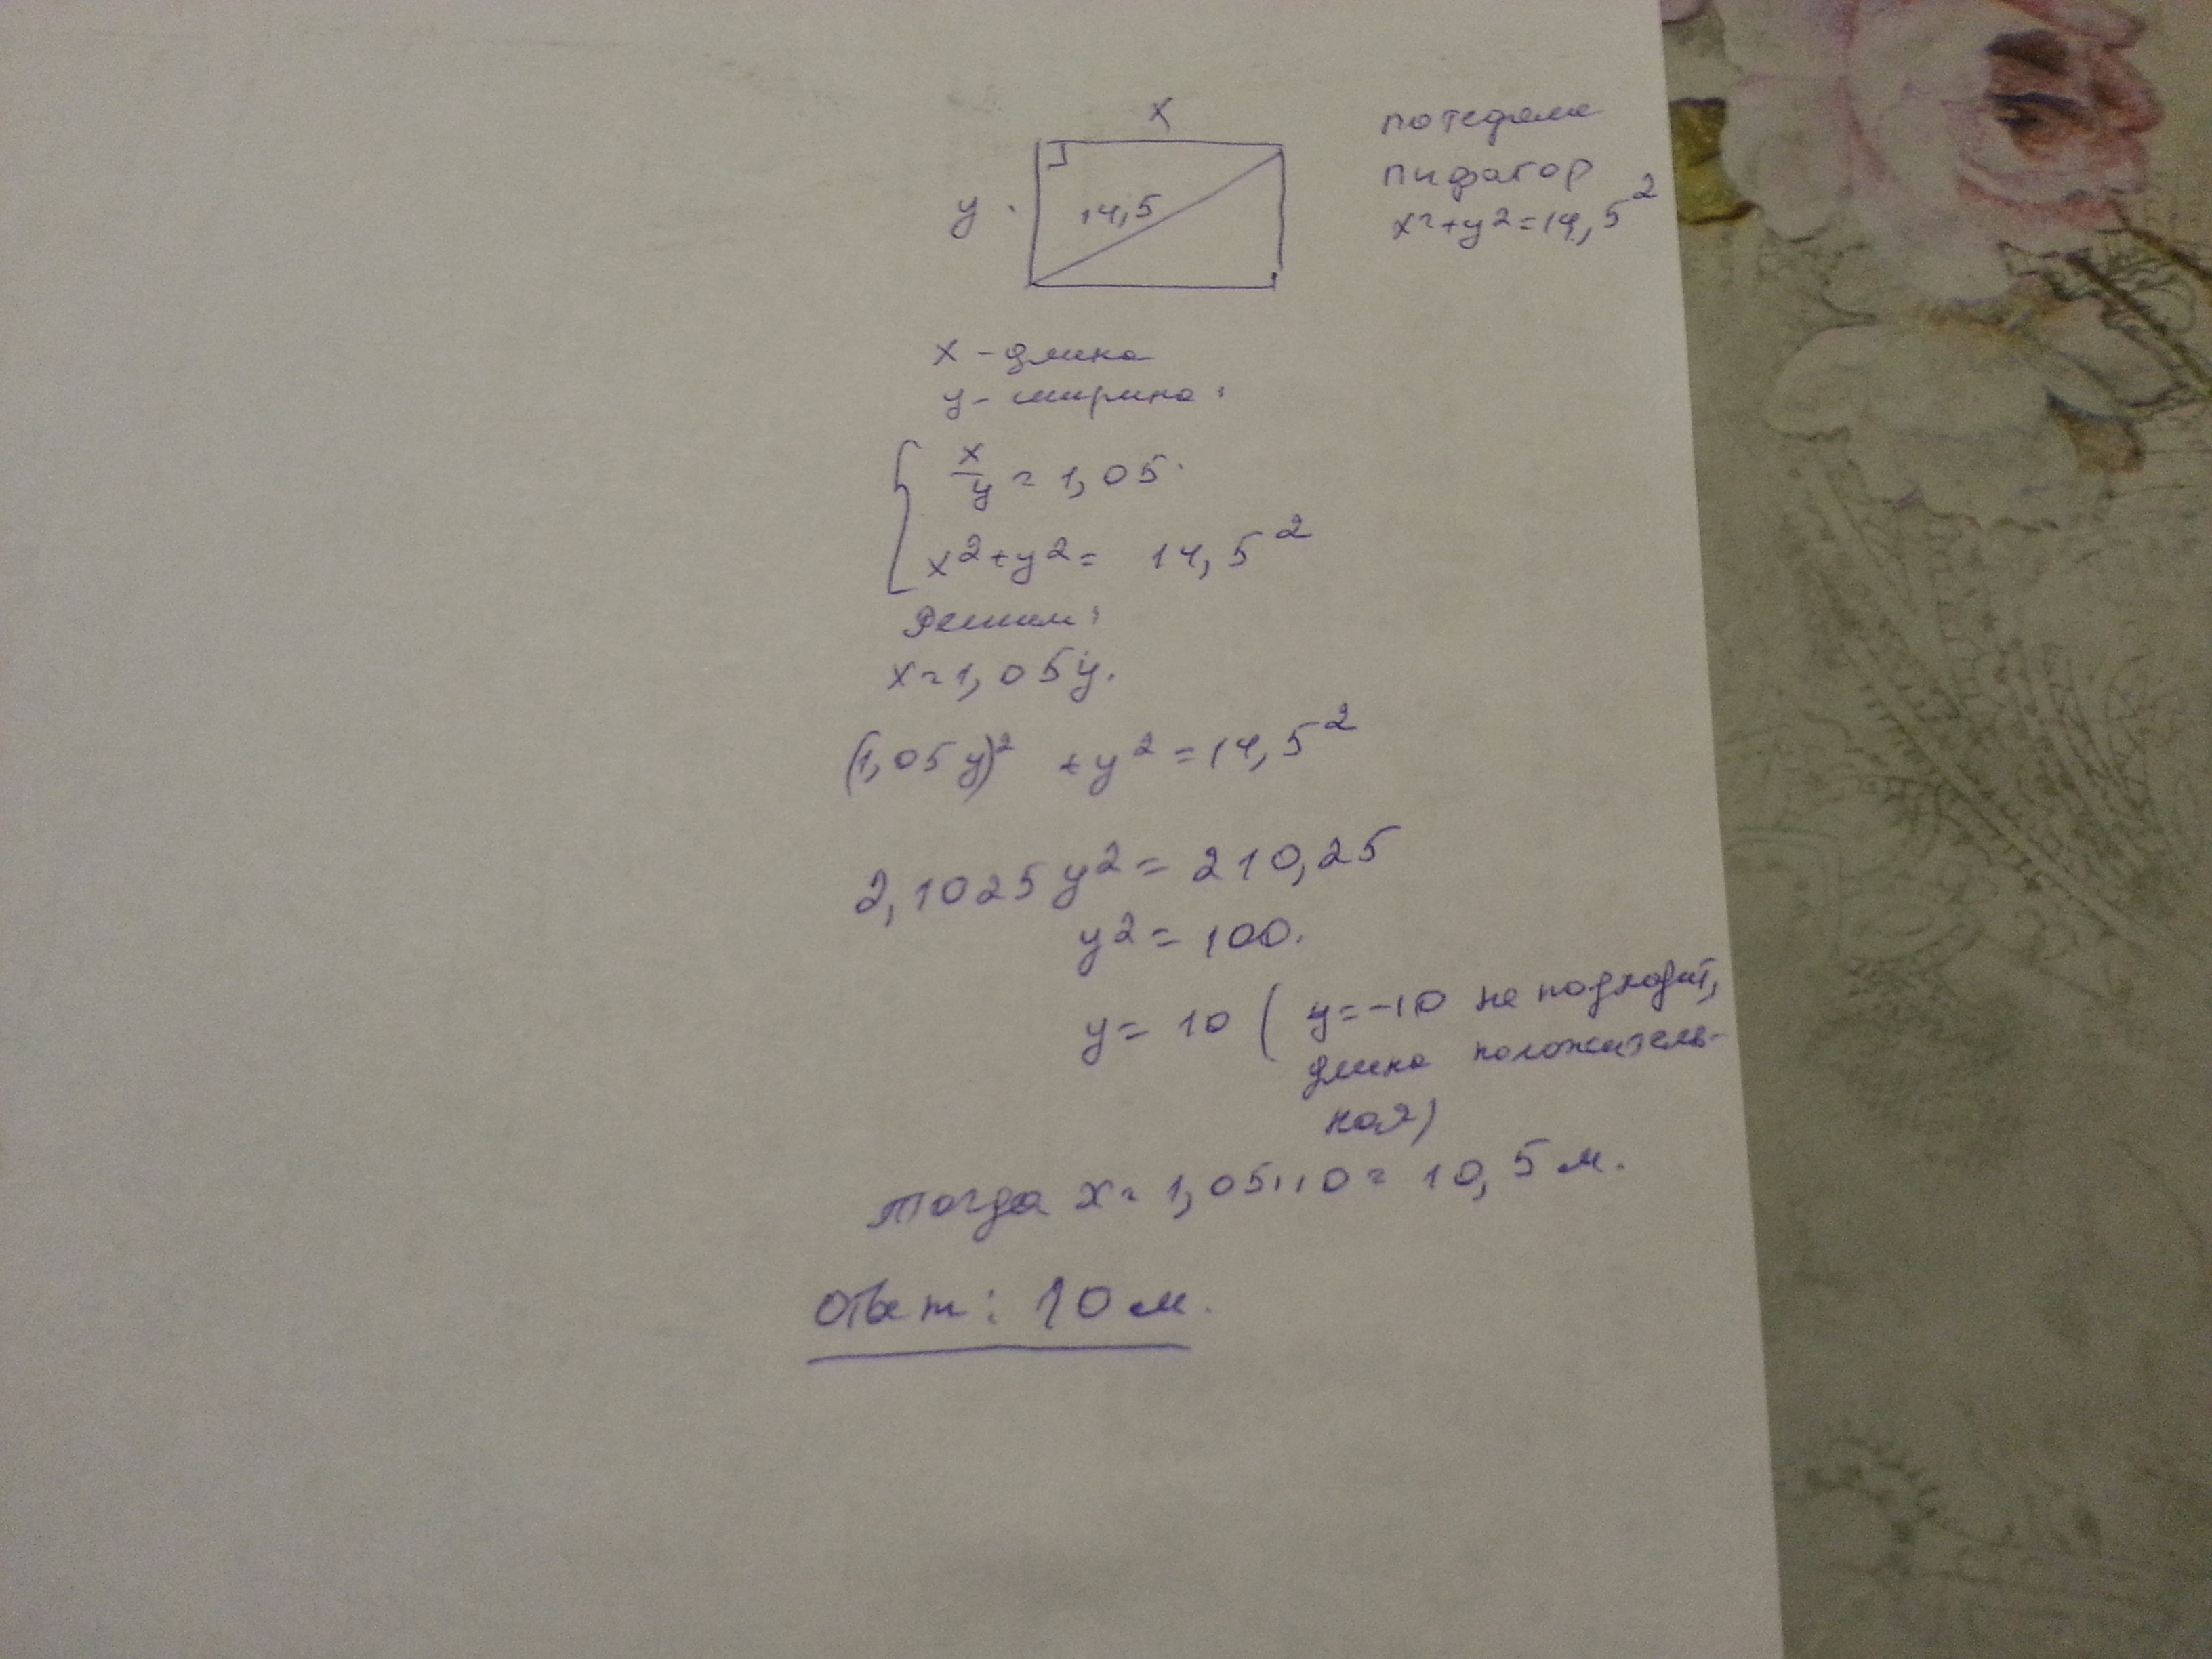 x
y
14,5
по теореме
пифагор
x²+y²=14,5²
x - длина
y - ширина:
x/y = 1,05.
x²+y² = 14,5²
Решим:
x=1,05y.
(1,05y)² + y² = 14,5²
2,1025y² = 210,25
y² = 100.
y = 10 (y=-10 не подходит,
длина положитель-
ная)
тогда x = 1,05·10 = 10,5 м.
Ответ: 10 м.